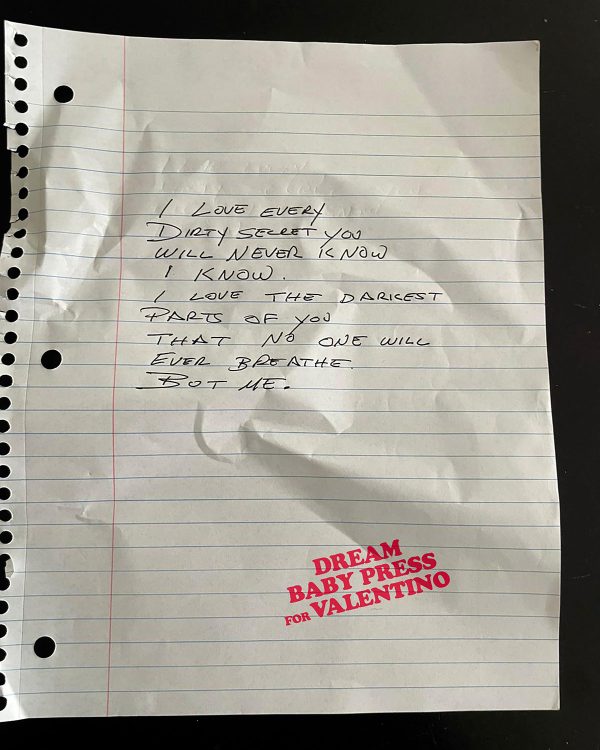 I LOVE EVERY
DIRTY SECRET YOU
WILL NEVER KNOW
I KNOW.
I LOVE THE DARKEST
PARTS OF YOU
THAT NO ONE WILL
EVER BREATHE.
BUT ME.
DREAM
BABY PRESS
FOR VALENTINO